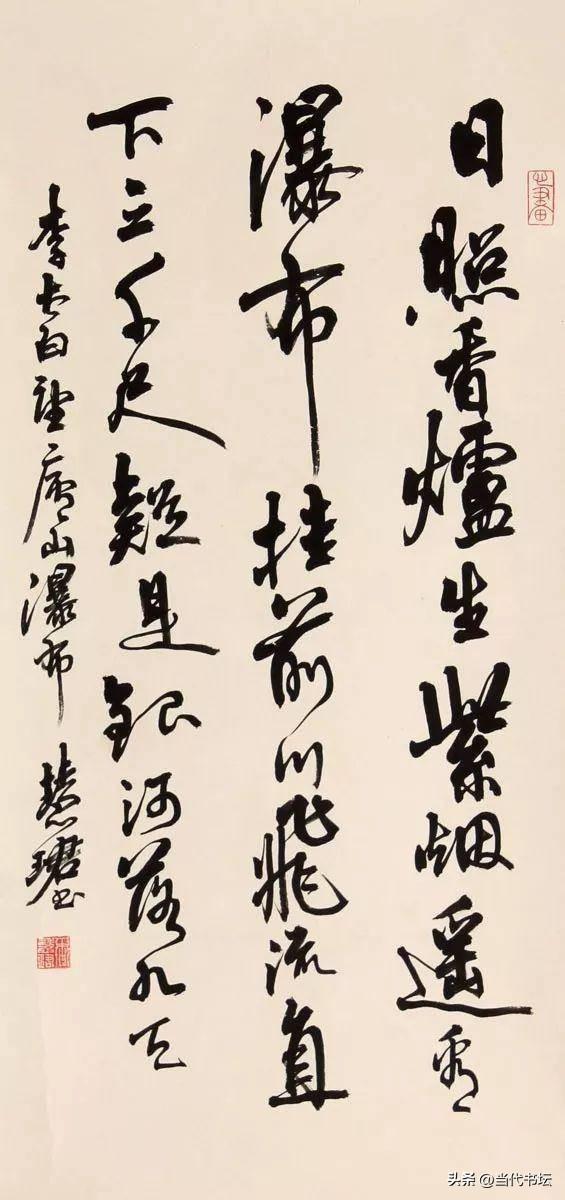 日照香爐生紫烟遥看
瀑布挂前川飛流直
下三千尺疑是銀河落九天
李太白望廬山瀑布 慧珺书
头条 @当代书坛